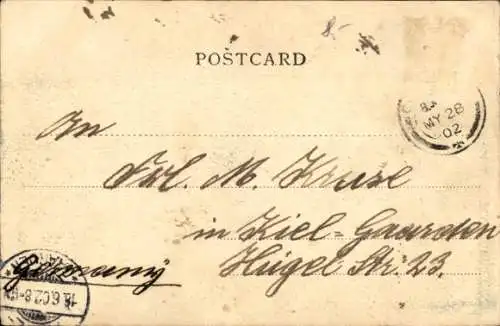 8.
POSTCARD
MY 28
02
An
Frl. M. Kruse
in Kiel=Gaarden
Germany Hügel Str. 23.
18.6.02.8-9N